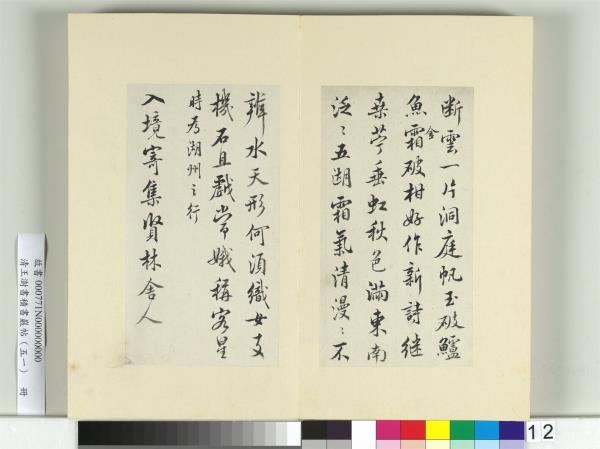 断雲一片洞庭帆玉破鱸
魚霜破柑好作新詩継
金
桒苧垂虹秋色滿東南
泛〻五湖霜氣清漫〻不
辨水天形何須織女支
機石且戲常娥稱客星
時为湖州之行
入境寄集賢林舍人
故書 000771N000000000
清王澍書積書巖帖（五一） 冊
12